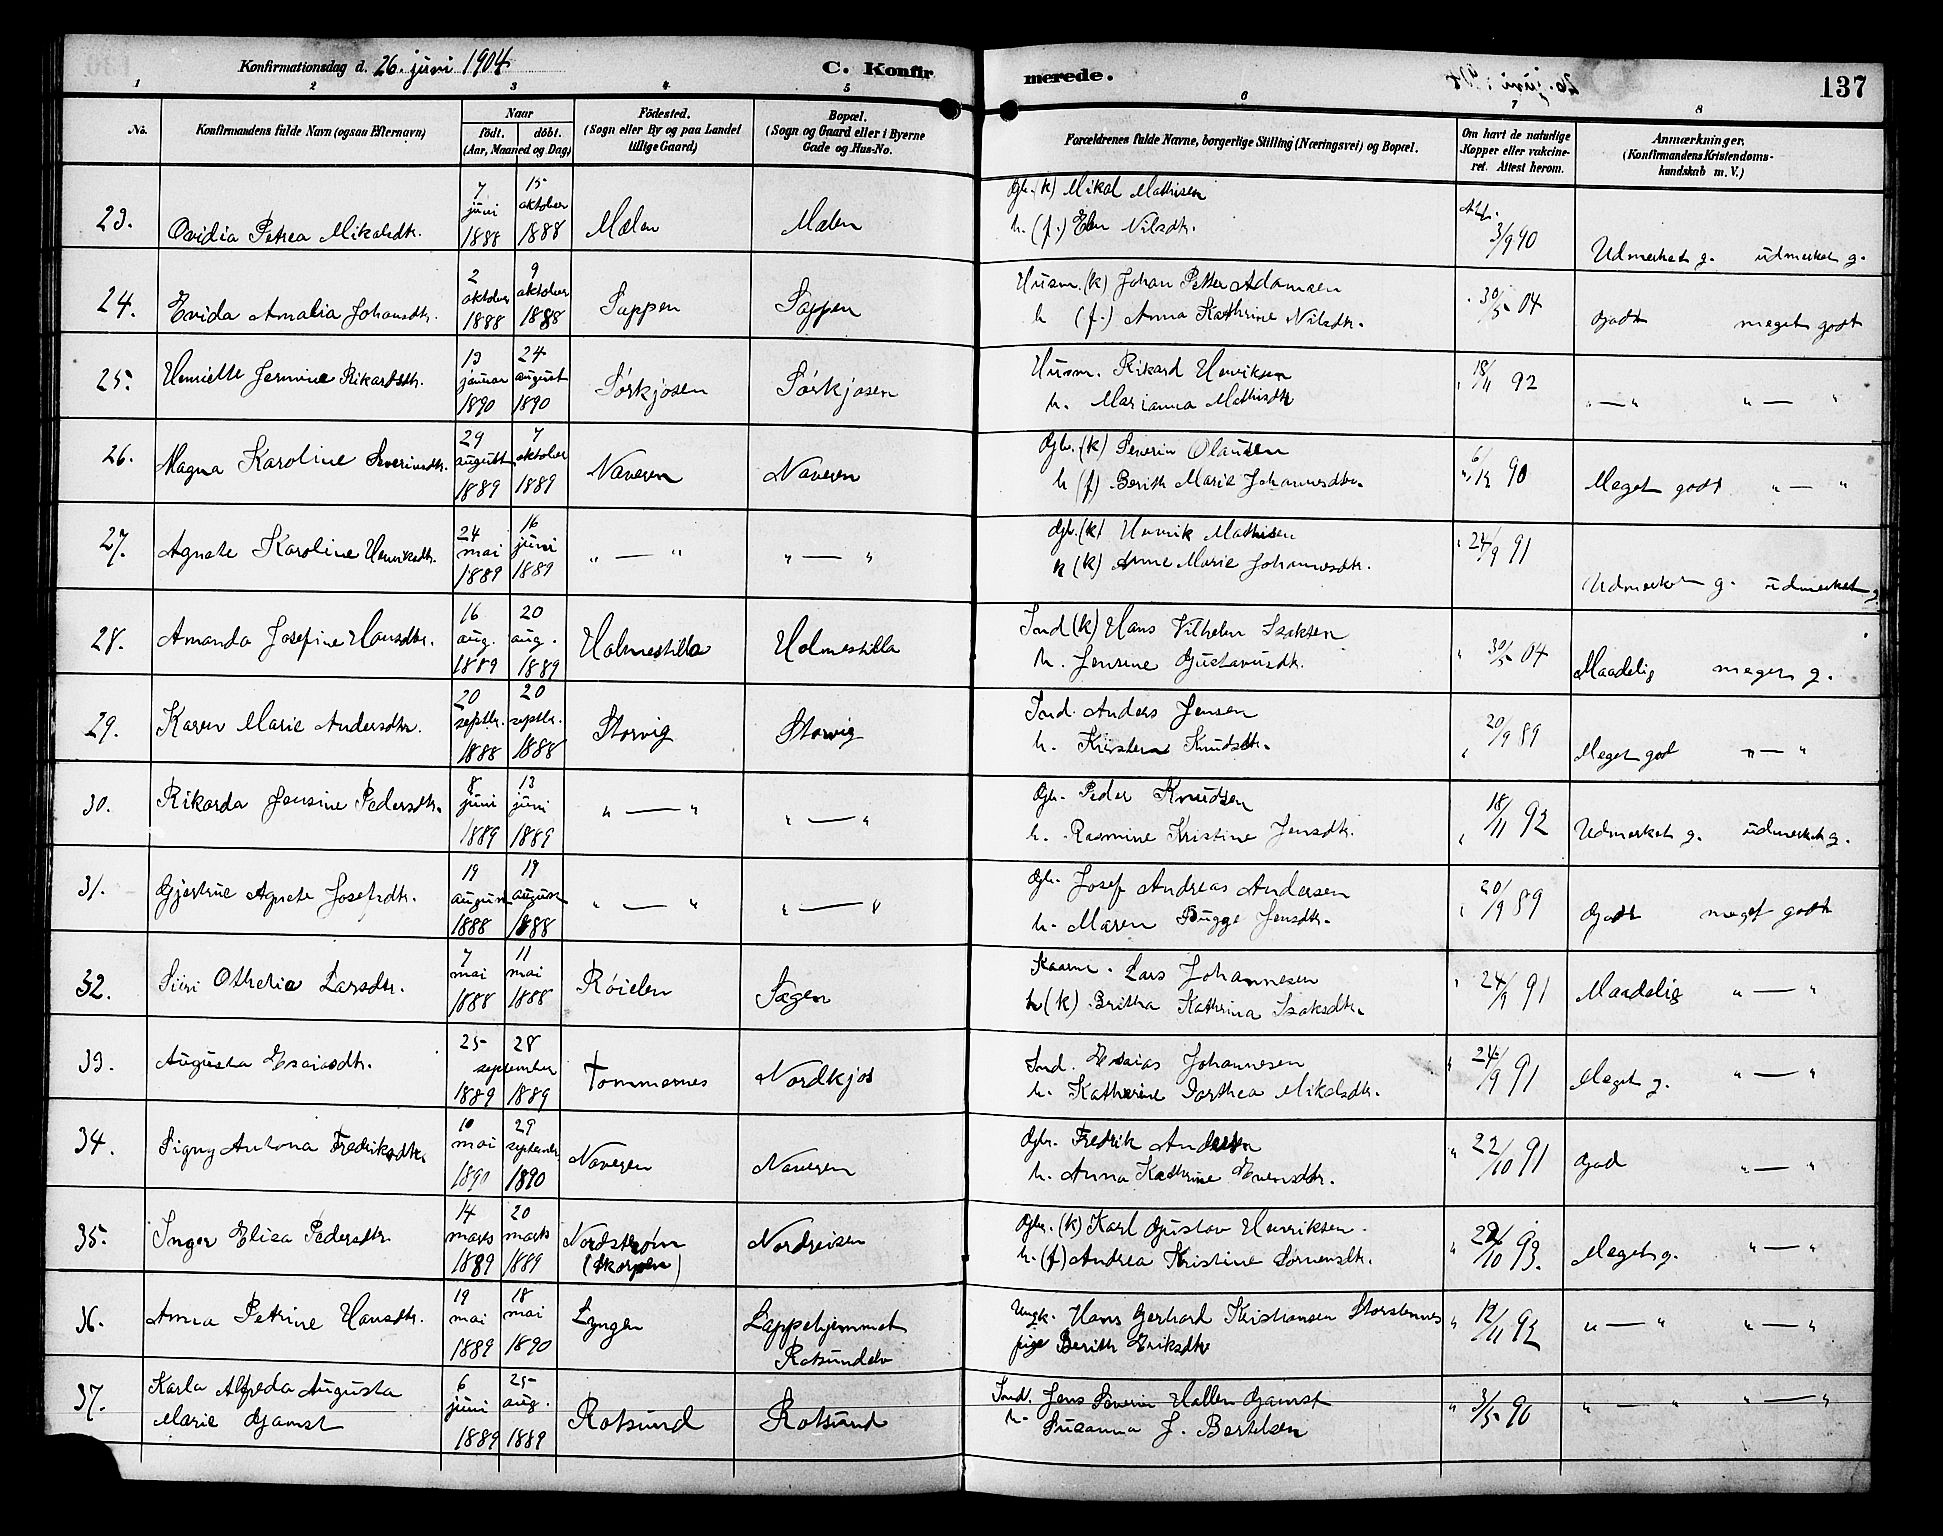 Konfirmationsdag d. 26. juni 1904
C. Konfirmerede.
137
1 2 3 4 5 6 7 8
No. Konfirmandens fulde Navn (ogsaa Efternavn) Naar født. døbt. (Aar, Maaned og Dag) Fødested. (Sogn eller By og paa Landet tillige Gaard) Bopæl. (Sogn og Gaard eller i Byerne Gade og Hus-No. Forældrenes fulde Navne, borgerlige Stilling (Næringsvei) og Bopæl. Om havt de naturlige Kopper eller vakcineret. Attest herom. Anmærkninger. (Konfirmandens Kristendomskundskab m. V.)
23. Ovidia Petrea Mikalsdtr. 7 juni 1888 15 oktober 1888 Mælen Mælen Gbr. (k) Mikal Mathisen
h. (f.) Elen Nilsdtr. 3/9 90 Udmerket g. udmerket g.
24. Evida Amalia Johansdtr. 2 oktober 1888 9 oktober 1888 Sappen Sappen Husm. (k) Johan Petter Adamsen
h (f.) Anna Kathrine Nilsdtr. 30/5 04 Godt meget godt
25. Henriette Jermine Rikardsdtr. 13 januar 1890 24 august 1890 Sørkjosen Sørkjosen Husm. Rikard Henriksen
h. Marianna Mathisdtr 18/11 92 " — " " — "
26. Magna Karoline Severinsdtr. 29 august 1889 7 oktober 1889 Naveren Naveren Gbr. (k) Severin Olausen
h (f) Berith Marie Johannesdtr. 6/12 90 Meget godt " — "
27. Agnete Karoline Henriksdtr. 24 mai 1889 16 juni 1889 " — " " — " Gbr. (k) Henrik Mathisen
h (k) Anne Marie Johannesdtr. 24/9 91 Udmerket g. udmerket g
28. Amanda Josefine Hansdtr. 16 aug. 1889 20 aug. 1889 Holmestilla Holmestilla Ind (k) Hans Vilhelm Isaksen
h. Jensine Gustavusdtr. 30/5 04 Maadelig meget g.
29. Karen Marie Andersdtr. 20 septbr. 1888 20 septbr. 1888 Storvig Storvig Ind. Anders Jensen
h. Kirsten Knudsdtr. 20/9 89 Meget god " — "
30. Rikarda Jensine Pedersdtr. 8 juni 1889 13 juni 1889 " — " " — " Gbr. Peder Knudsen
h. Rasmine Kristine Jensdtr. 18/11 92 Udmerket g. udmerket g.
31. Gjertrue Agnete Josefsdtr. 19 august 1888 19 august 1888 " — " " — " Gbr. Josef Andreas Andersen
h. Maren Bugge Jensdtr. 20/9 89 Godt meget godt
32. Siiri Othelie Larsdtr. 7 mai 1888 11 mai 1888 Røielen Sagen Lars Johannesen
h (k) Britha Kathrina Isaksdtr. 24/9 91 Maadelig " — "
33. Augusta Esaiasdtr. 25 28 september 1889 1889 Tommernes Nordkjos Ind. Esaias Johannesen
h. Katherine Dorthea Mikalsdtr. 24/9 91 Meget g. " — "
34. Signy Antona Fredriksdtr. 10 mai 1890 29 september 1890 Naveren Naveren Gbr. Fredrik Andersen
h. Anna Kathrine Evensdtr. 22/10 91 God " — "
35. Inger Elisa Pedersdtr. 14 marts 1889 20 marts 1889 Nordstrøm (Skorpen) Nordreisen Gbr. (k) Karl Gustav Henriksen
h. (f) Andrea Kristine Sørensdtr. /10 93. Meget g. " — "
36. Anna Petrine Hansdtr. 19 mai 1889 18 mai 1890 Lyngen Lappehjemmet Rotsundelv Ungk. Hans Gerhard Kristiansen Storstennes
pige Berith Eriksdtr 12/11 92 " — " " — "
37. Karla Alfreda Augusta
Marie Gamst 6 juni 1889 25 aug. 1889 Rotsund Rotsund Ind. Jens Severin Hallen Gamst
h. Susanna J. Bertelsen 3/5 90 " — " " — "